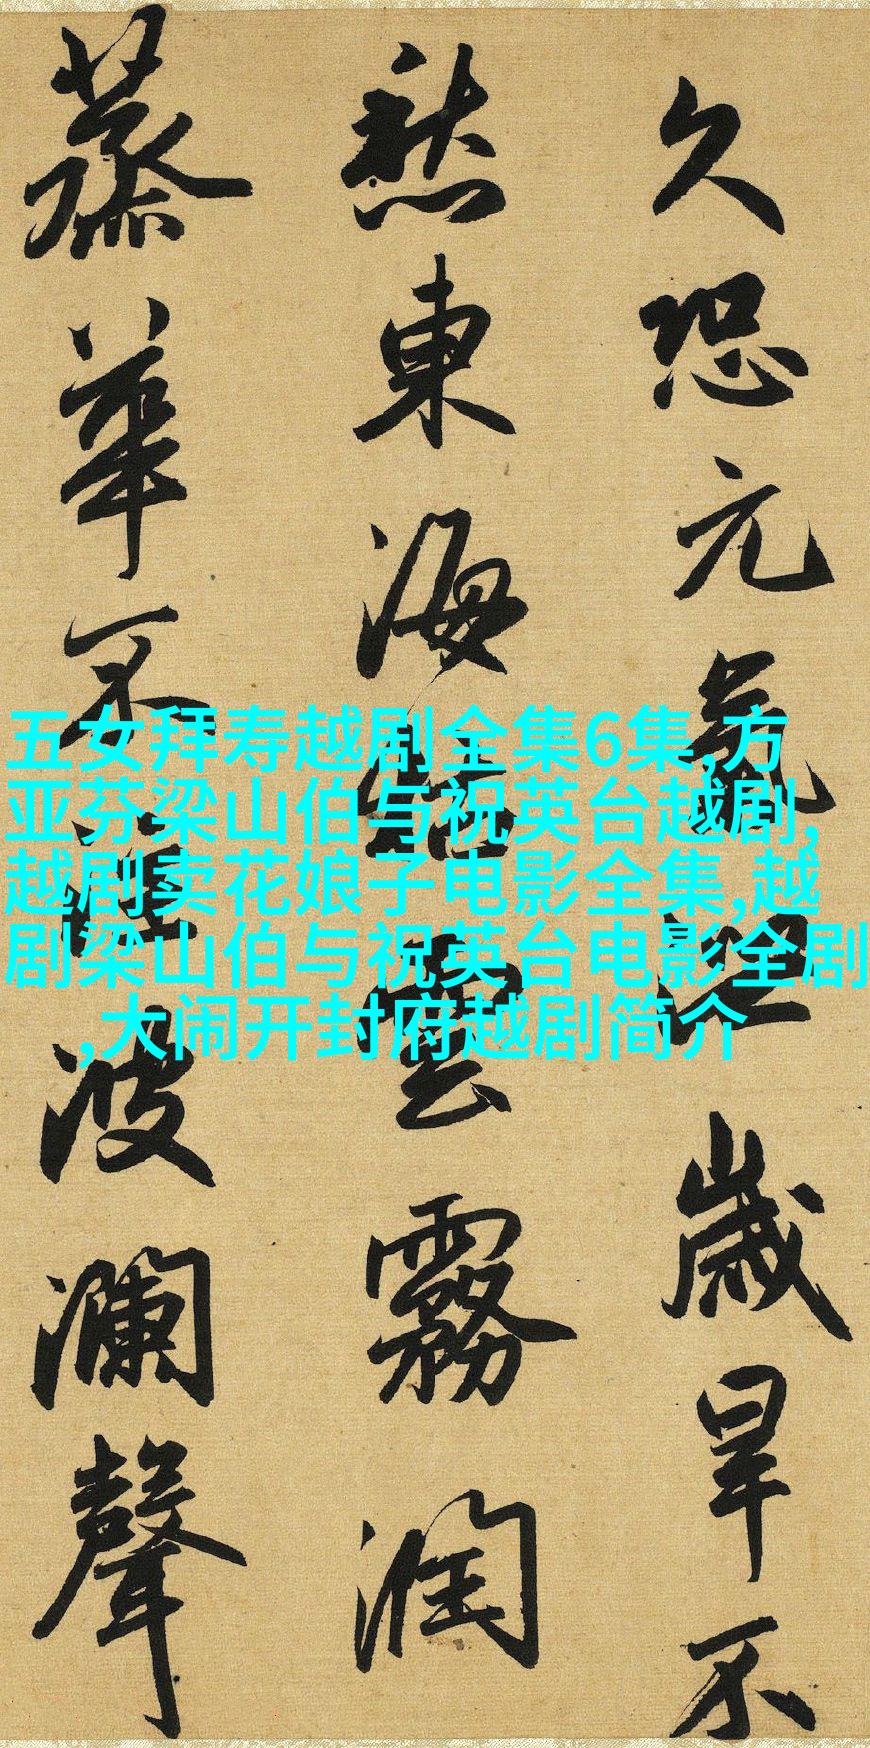 久恐元氣泄歲旱不
愁東海枯雲霧潤
蒸華不注波瀾聲
五女拜寿越剧全集6集,方
亚芬梁山伯与祝英台越剧,
越剧卖花娘子电影全集,越
剧梁山伯与祝英台电影全剧
,大闹开封府越剧简介